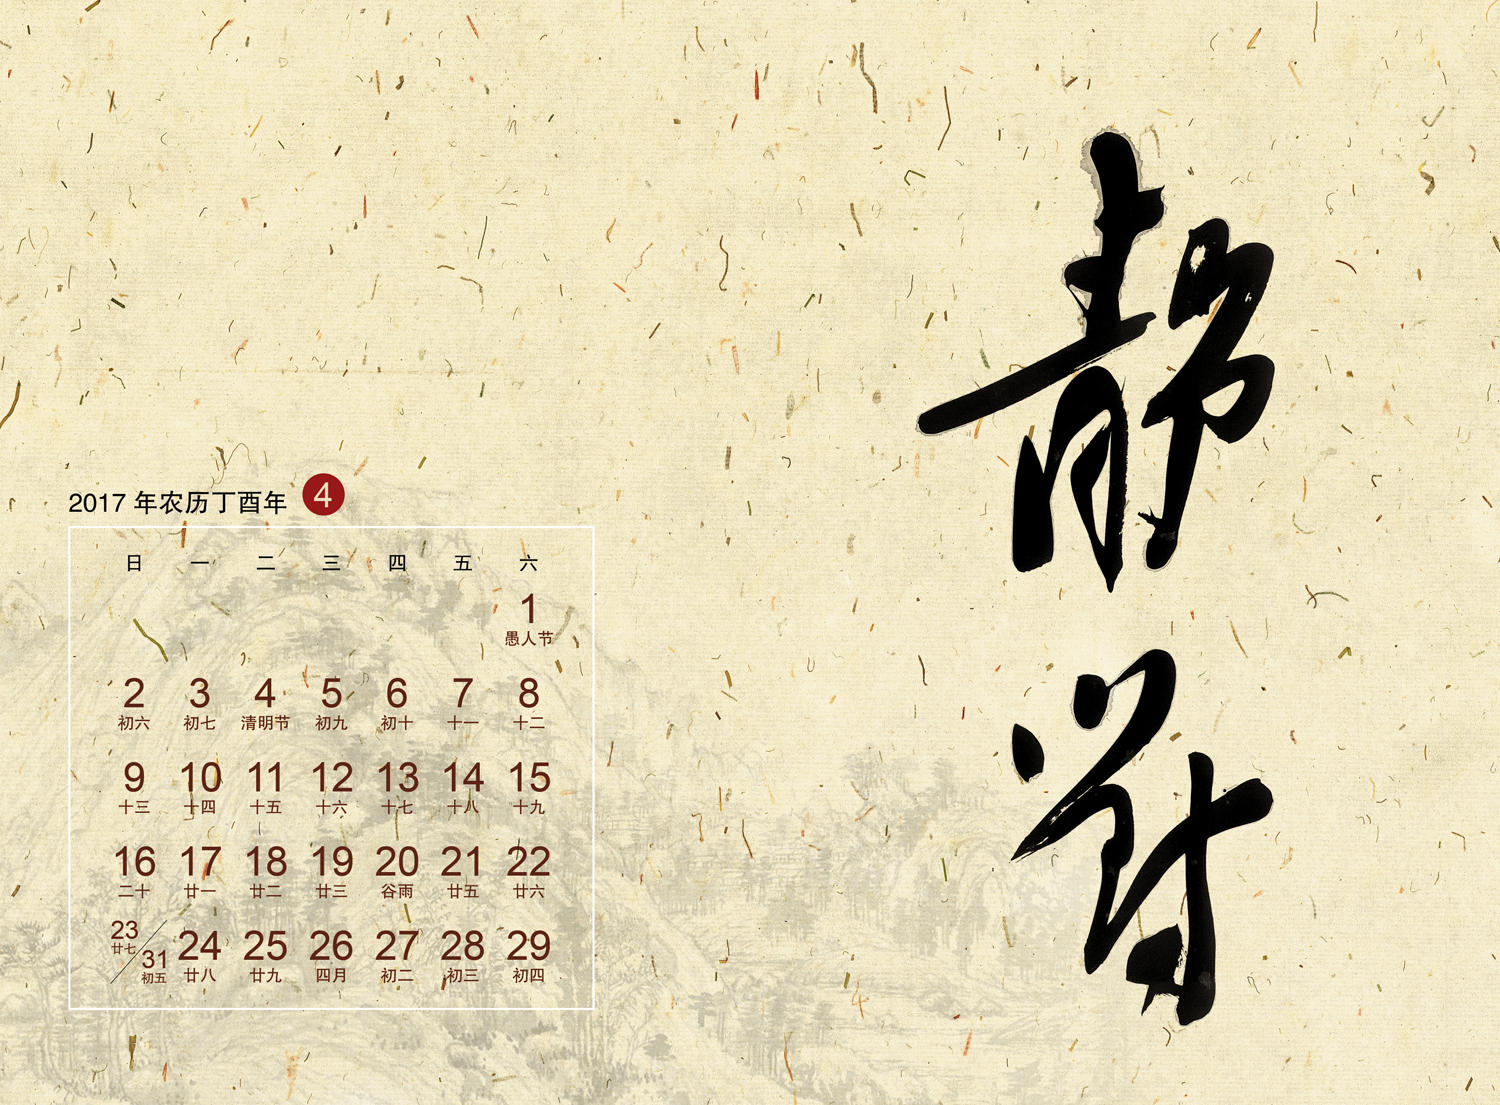 静
對
2017 年农历丁酉年 4
日 一 二 三 四 五 六
1
愚人节
2 3 4 5 6 7 8
初六 初七 清明节 初九 初十 十一 十二
9 10 11 12 13 14 15
十三 十四 十五 十六 十七 十八 十九
16 17 18 19 20 21 22
二十 廿一 廿二 廿三 谷雨 廿五 廿六
23/31 24 25 26 27 28 29
廿七 初五 廿八 廿九 四月 初二 初三 初四